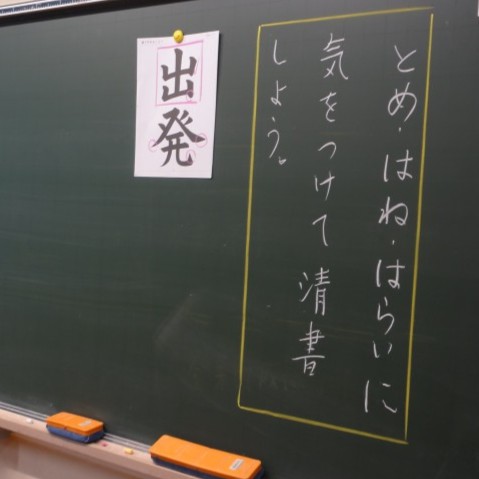 とめ・はね・はらいに
気をつけて清書
しよう。
出発